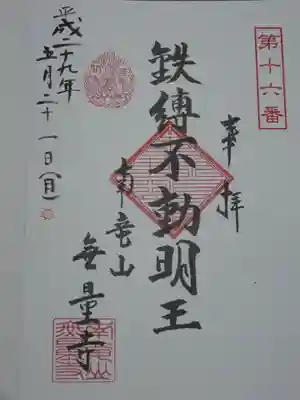 第十六番
奉拝
鉄縛不動明王
南竜山
無量寺
平成二十九年
五月二十一日(日)